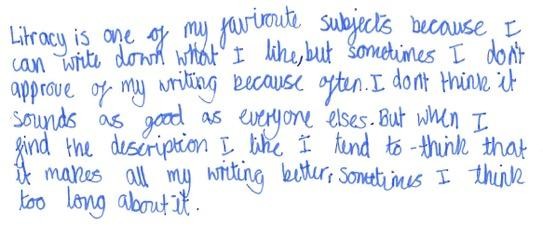 Litracy is one of my faviroute subjects because I
can write down what I like, but sometimes I don't
approve of my writing because often. I dont think it
sounds as good as everyone elses. But when I
find the description I like I tend to -think that
it makes all my writing better, sometimes I think
too long about it.